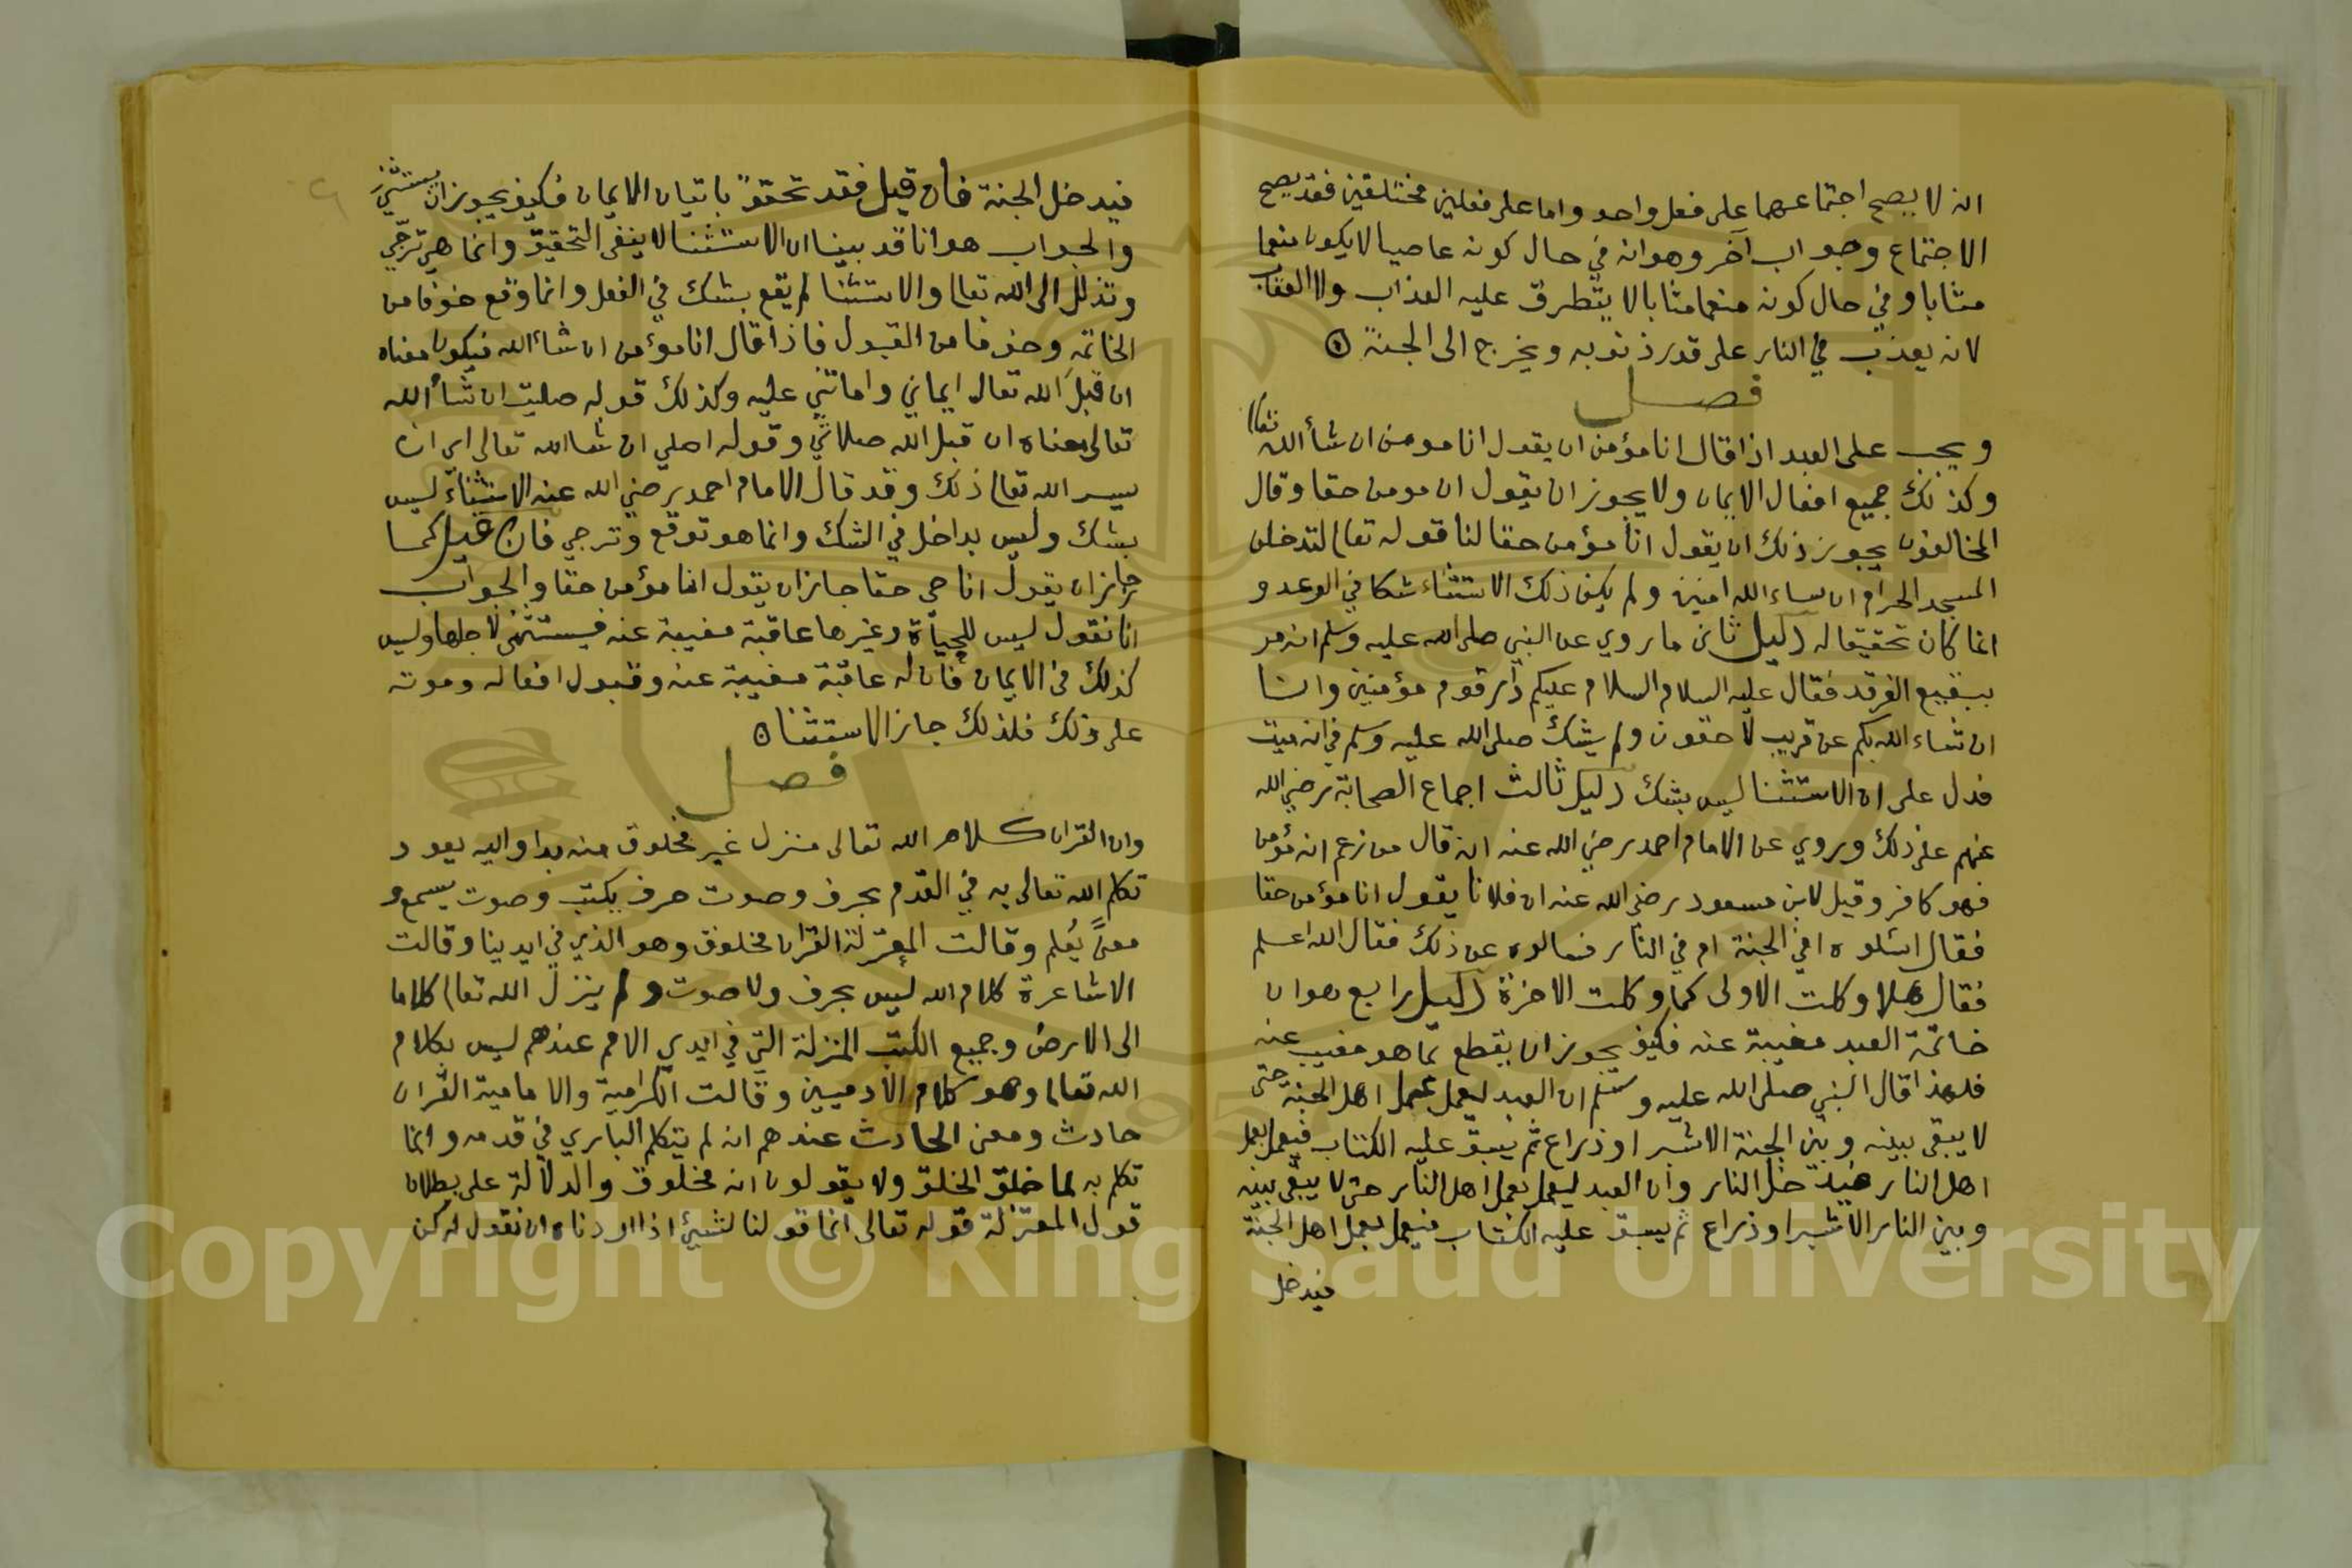 انه لا يصح اجتماعهما على فعل واحد واما على فعلين مختلفين فقد يصح
الاجتماع وجواب آخر وهو انه في حال كونه عاصيا لا يكون منعما
مثابا وفي حال كونه منعما مثابا لا يتطرق عليه العذاب ولا العقاب
لانه يعذب في النار على قدر ذنوبه ويخرج الى الجنة
فصل
ويجب على العبد اذا قال انا مؤمن ان يقول انا مومن ان شأ الله تعا
وكذلك جميع افعال الايمان ولا يجوز ان يقول ان مومن حقا وقال
المخالفون يجوز ذلك ان يقول انا مؤمن حقا لنا قوله تعا لتدخلن
المسجد الحرام ان ساء الله امنين ولم يكن ذلك الاستثناء شكا في الوعد و
انما كان تحقيقا له دليل ثاني ما روي عن النبي صلى الله عليه وسلم انه مر
ببقيع الغرقد فقال عليه السلام السلام عليكم دار قوم مؤمنين وانا
ان شاء الله بكم عن قريب لاحقون ولم يشك صلى الله عليه وسلم في انه ميت
فدل على ان الاستثنا ليس بشك دليل ثالث اجماع الصحابة رضي الله
عنهم على ذلك وروي عن الامام احمد رضي الله عنه انه قال من زعم انه مؤمن
فهو كافر وقيل لابن مسعود رضي الله عنه ان فلانا يقول انا مؤمن حقا
فقال اسئلوه افي الجنة ام في النار فسالوه عن ذلك فقال الله اعلم
فقال هلا وكلت الاولى كما وكلت الاخرة دليل رابع هو ان
خاتمة العبد مغيبة عنه فكيف يجوز ان يقطع بما هو مغيب عنه
فلهذا قال النبي صلى الله عليه وسلم ان العبد ليعمل عمل اهل الجنة حتى
لا يبقى بينه وبين الجنة الا شبر او ذراع ثم يسبق عليه الكتاب فيعمل بعمل
اهل النار فيدخل النار وان العبد ليعمل بعمل اهل النار حتى لا يبقى بينه
وبين النار الا شبرا وذراع ثم يسبق عليه الكتاب فيعمل بعمل اهل الجنة
فيدخل
فيدخل الجنة فان قيل فقد تحقق باتيان الايمان فكيف يجوز ان يستثني
والجواب هو انا قد بينا ان الاستثنا لا ينفي التحقيق وانما هي ترجي
وتذلل الى الله تعا والاستثنا لم يقع بشك في الفعل وانما وقع خوفا من
الخاتمة وخوفا من القبول فاذا قال انا مؤمن ان شاء الله فيكون معناه
ان قبل الله تعالى ايماني واماتني عليه وكذلك قوله صليت ان شأ الله
تعالى معناه ان قبل الله صلاتي وقوله اصلي ان شا الله تعالى اي ان
يسر الله تعا ذلك وقد قال الامام احمد رضي الله عنه الاستثناء ليس
بشك وليس بداخل في الشك وانما هو توقع وترجي فان قيل كما
جاز ان يقول انا حي حقا جاز ان يقول انا مؤمن حقا والجواب
انا نقول ليس للحياة وغيرها عاقبة مغيبة عنه فيستثنى لاجلها وليس
كذلك في الايمان فان له عاقبة مغيبة عنه وقبول افعاله وموته
على ذلك فلذلك جاز الاستثنا
فصل
وان القران كلام الله تعالى منزل غير مخلوق منه بدا واليه يعود
تكلم الله تعالى به في القدم بحرف وصوت حرف يكتب وصوت يسمع و
معنى يُعلم وقالت المعتزلة القران مخلوق وهو الذي في ايدينا وقالت
الاشاعرة كلام الله ليس بحرف ولا صوت ولم ينزل الله تعا كلاما
الى الارض وجميع الكتب المنزلة التي في ايدي الامم عندهم ليس بكلام
الله تعا وهو كلام الادميين وقالت الكرامية والامامية القران
حادث ومعنى الحادث عندهم انه لم يتكلم الباري في قدمه وانما
تكلم به لما خلق الخلق ولا يقولون انه مخلوق والدلالة على بطلان
قول المعتزلة قوله تعالى انما قولنا لشيئ اذا اردناه ان نقول له كن
Copyright © King Saud University